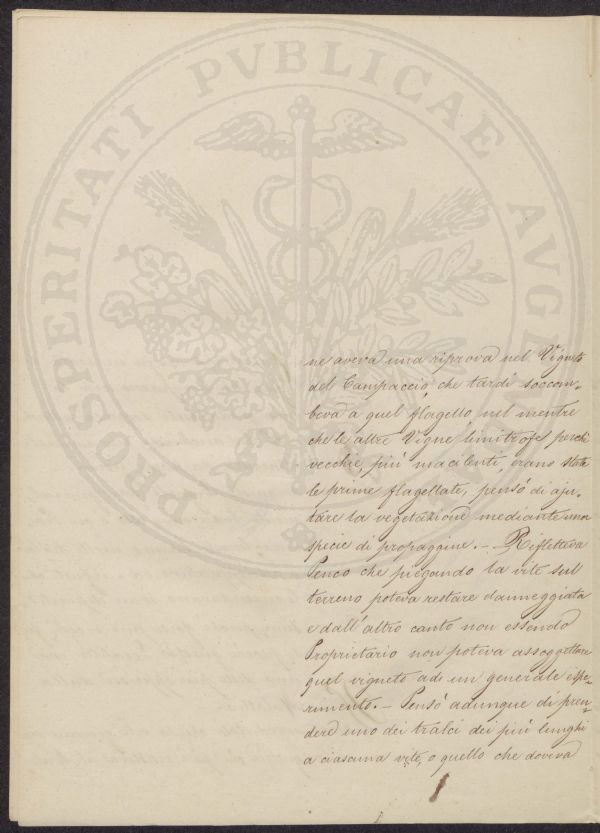 ne aveva una riprova nel Vigneto
del Campaccio, che tardi soccom-
beva a quel flagello, nel mentre
che le altre Vigne limitrofe, perchè
vecchie, più macilenti, erano state
le prime flagellate, pensò di aju-
tare la vegetazione mediante una
specie di propaggine. — Rifletteva
Penco che piegando la vite sul
terreno poteva restare danneggiata
e dall'altro canto non essendo
Proprietario non poteva assoggettare
quel vigneto ad un generale espe-
rimento. — Pensò adunque di pren-
dere uno dei tralci dei più lunghi
a ciascuna vite, o quello che doveva
PROSPERITATI PVBLICAE AVGE